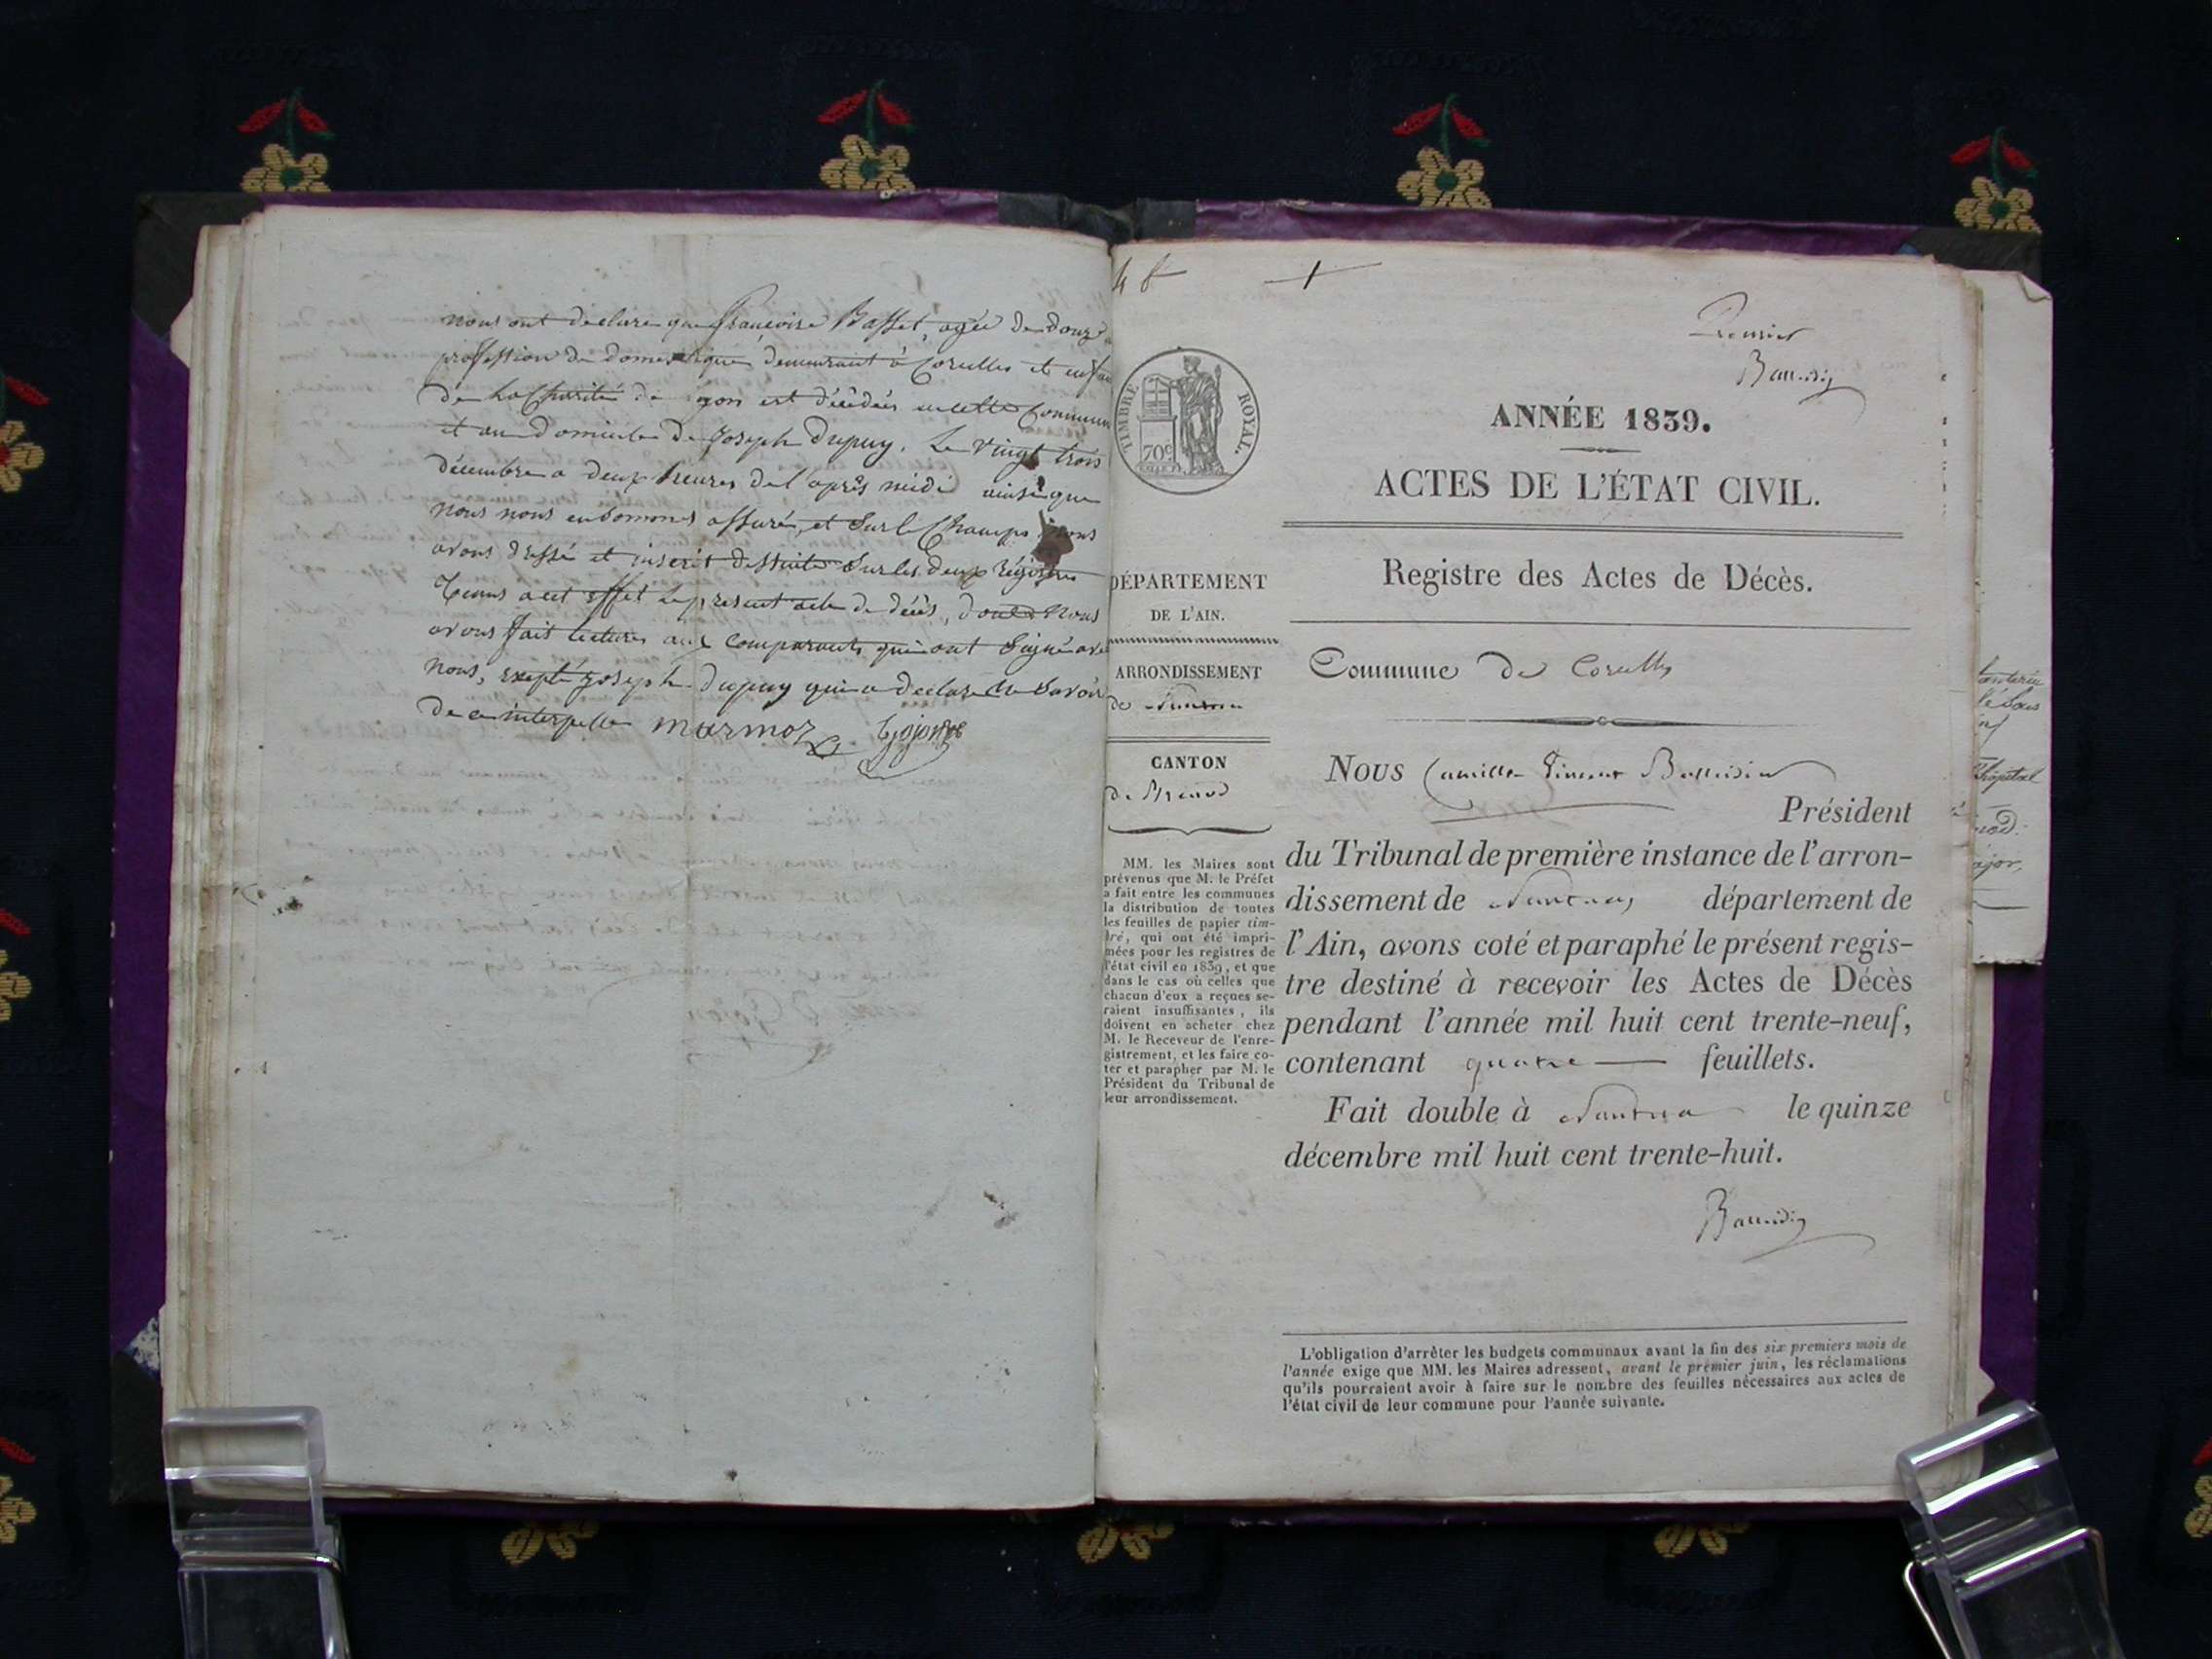 nous ont déclaré que françoise Basset, agée de douze
profession de domestique demeurant à Corcelles et enfant
de la Charité de Lyon est décédée en cette Commune
et au domicile de Joseph Dupuy. Le vingt trois
décembre a deux heures de l'après midi ainsi que
nous nous en sommes assuré, et sur le Champs nous
avons dressé et inscrit de suite sur les deux régistres
Tenus a cet effet le présent acte de décès, dont nous
avons fait lecture aux comparants qui ont signé avec
nous, excepté Joseph dupuy qui a déclaré ne savoir
de ce interpellé marmoz Gojon
48 1
Premier
TIMBRE ROYAL.
70c
ANNÉE 1839.
ACTES DE L'ÉTAT CIVIL.
Registre des Actes de Décès.
DÉPARTEMENT
DE L'AIN.
ARRONDISSEMENT
de Nantua
CANTON
de Brénod
MM. les Maires sont
prévenus que M. le Préfet
a fait entre les communes
la distribution de toutes
les feuilles de papier tim-
bré, qui ont été impri-
mées pour les registres de
l'état civil en 1839, et que
dans le cas où celles que
chacun d'eux a reçues se-
raient insuffisantes, ils
doivent en acheter chez
M. le Receveur de l'enre-
gistrement, et les faire co-
ter et parapher par M. le
Président du Tribunal de
leur arrondissement.
Commune de Corcelles
Nous Camille Vincent
Président
du Tribunal de première instance de l'arron-
dissement de Nantua, département de
l'Ain, avons coté et paraphé le présent regis-
tre destiné à recevoir les Actes de Décès
pendant l'année mil huit cent trente-neuf,
contenant quatre feuillets.
Fait double à Nantua le quinze
décembre mil huit cent trente-huit.
L'obligation d'arrêter les budgets communaux avant la fin des six premiers mois de
l'année exige que MM. les Maires adressent, avant le premier juin, les réclamations
qu'ils pourraient avoir à faire sur le nombre des feuilles nécessaires aux actes de
l'état civil de leur commune pour l'année suivante.
hôpital